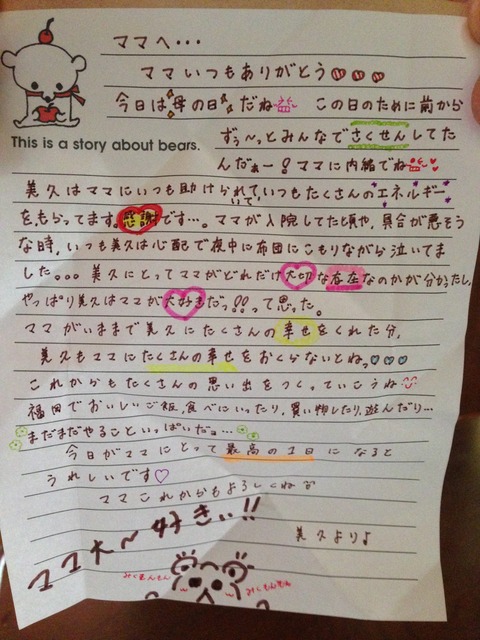 ママへ・・・
ママいつもありがとう♡♡♡
今日は母の日だね この日のために前から
ずぅ〜っとみんなでさくせんしてた
This is a story about bears.
んだぁー!ママに内緒でね
美久はママにいつも助けられていて、いつもたくさんのエネルギー
をもらってます。感謝です…。ママが入院してた頃や、具合が悪そう
な時、いつも美久は心配で夜中に布団にこもりながら泣いてま
した。。。美久にとってママがどれだけ大切な存在なのかが分かったし、
やっぱり美久はママが大好きだっ!!って思った。
ママがいままで美久にたくさんの幸せをくれた分、
美久もママにたくさんの幸せをおくらないとねっ♡♡♡
これからもたくさんの思い出をつくっていこうね
福田でおいしいご飯、食べにいったり、買い物したり、遊んだり…
まだまだやることいっぱいだョ…
今日がママにとって最高の1日になると
うれしいです♡
ママこれからもよろしくね
ママ大〜好きぃ!!
美久より♪